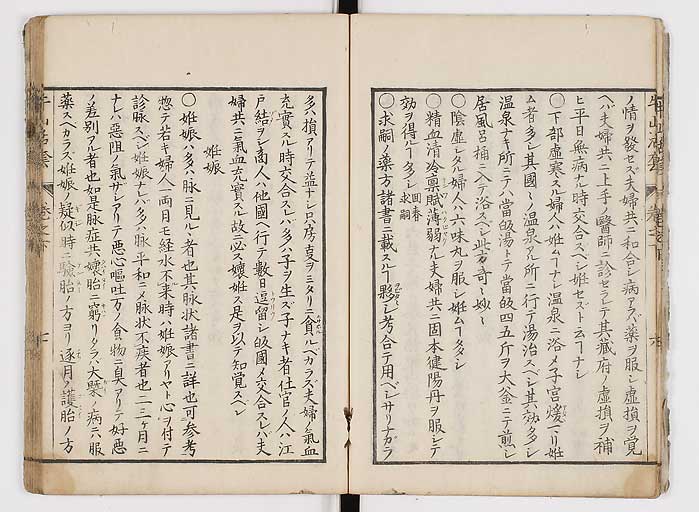 ノ情ヲ發セズ夫婦共ニ和合シ病アラバ薬ヲ服シ虚損ヲ覚
ヘバ夫婦共ニ上手ノ醫師ニ診セラレテ其蔵府ノ虚損ヲ補
ヒ平日無病ナル時交合スベシ妊セズト云コナシ
○下部虚寒スル婦人ハ妊ムコナシ温泉ニ浴メ子宮煖マリ妊
ム者多シ其國ニ温泉アル所ニ行テ湯治スベシ其功多シ
温泉ナキ所ニテハ當皈湯トテ當皈四五斤ヲ大釜ニテ煎シ
居風呂桶ニ入テ浴スベシ此方奇ニ妙ニ
○陰虚シタル婦人ハ六味丸ヲ服シ妊ムコ多シ
○精血清冷禀賦薄弱ナル夫婦共ニ固本健陽丹ヲ服シテ
効ヲ得ルコ多シ 回春 求嗣
○求嗣ノ薬方諸書ニ載スルコ夥シ考合テ用ベシサリナガラ
多ハ損アリテ益ナシ只房事ヲミタリニ貪ルベカラズ夫婦ノ氣血
充實スル時交合スレバ多ハ子ヲ生ズ子ナキ者仕官ノ人ハ江
戸結ヲシ商人ハ他國ヘ行テ數日逗留シ皈國メ交合スレバ夫
婦共ニ氣血充實スル故ニ必ス孃妊ス是ヲ以テ知覚スベシ
妊娠
○妊娠ハ多ハ脉ニ見ルヽ者也其脉状諸書ニ詳也可参考
惣テ若キ婦人一両月モ経水不来時ハ妊娠アリヤト心ヲ付テ
診脉スベシ妊娠ナレバ多ハ脉平和ニメ脉状不疾者也二三ケ月ニ
ナレハ惡阻ノ氣ザシアリテ悪心嘔吐万ノ食物ニ臭アリテ好悪
ノ差別アル者也如是脉症共ニ孃胎ニ窮リタラバ大槩ノ病ニハ服
薬スベカラズ妊娠ノ疑似時ニ驗胎ノ方ヨリ逐月ノ護胎ノ方